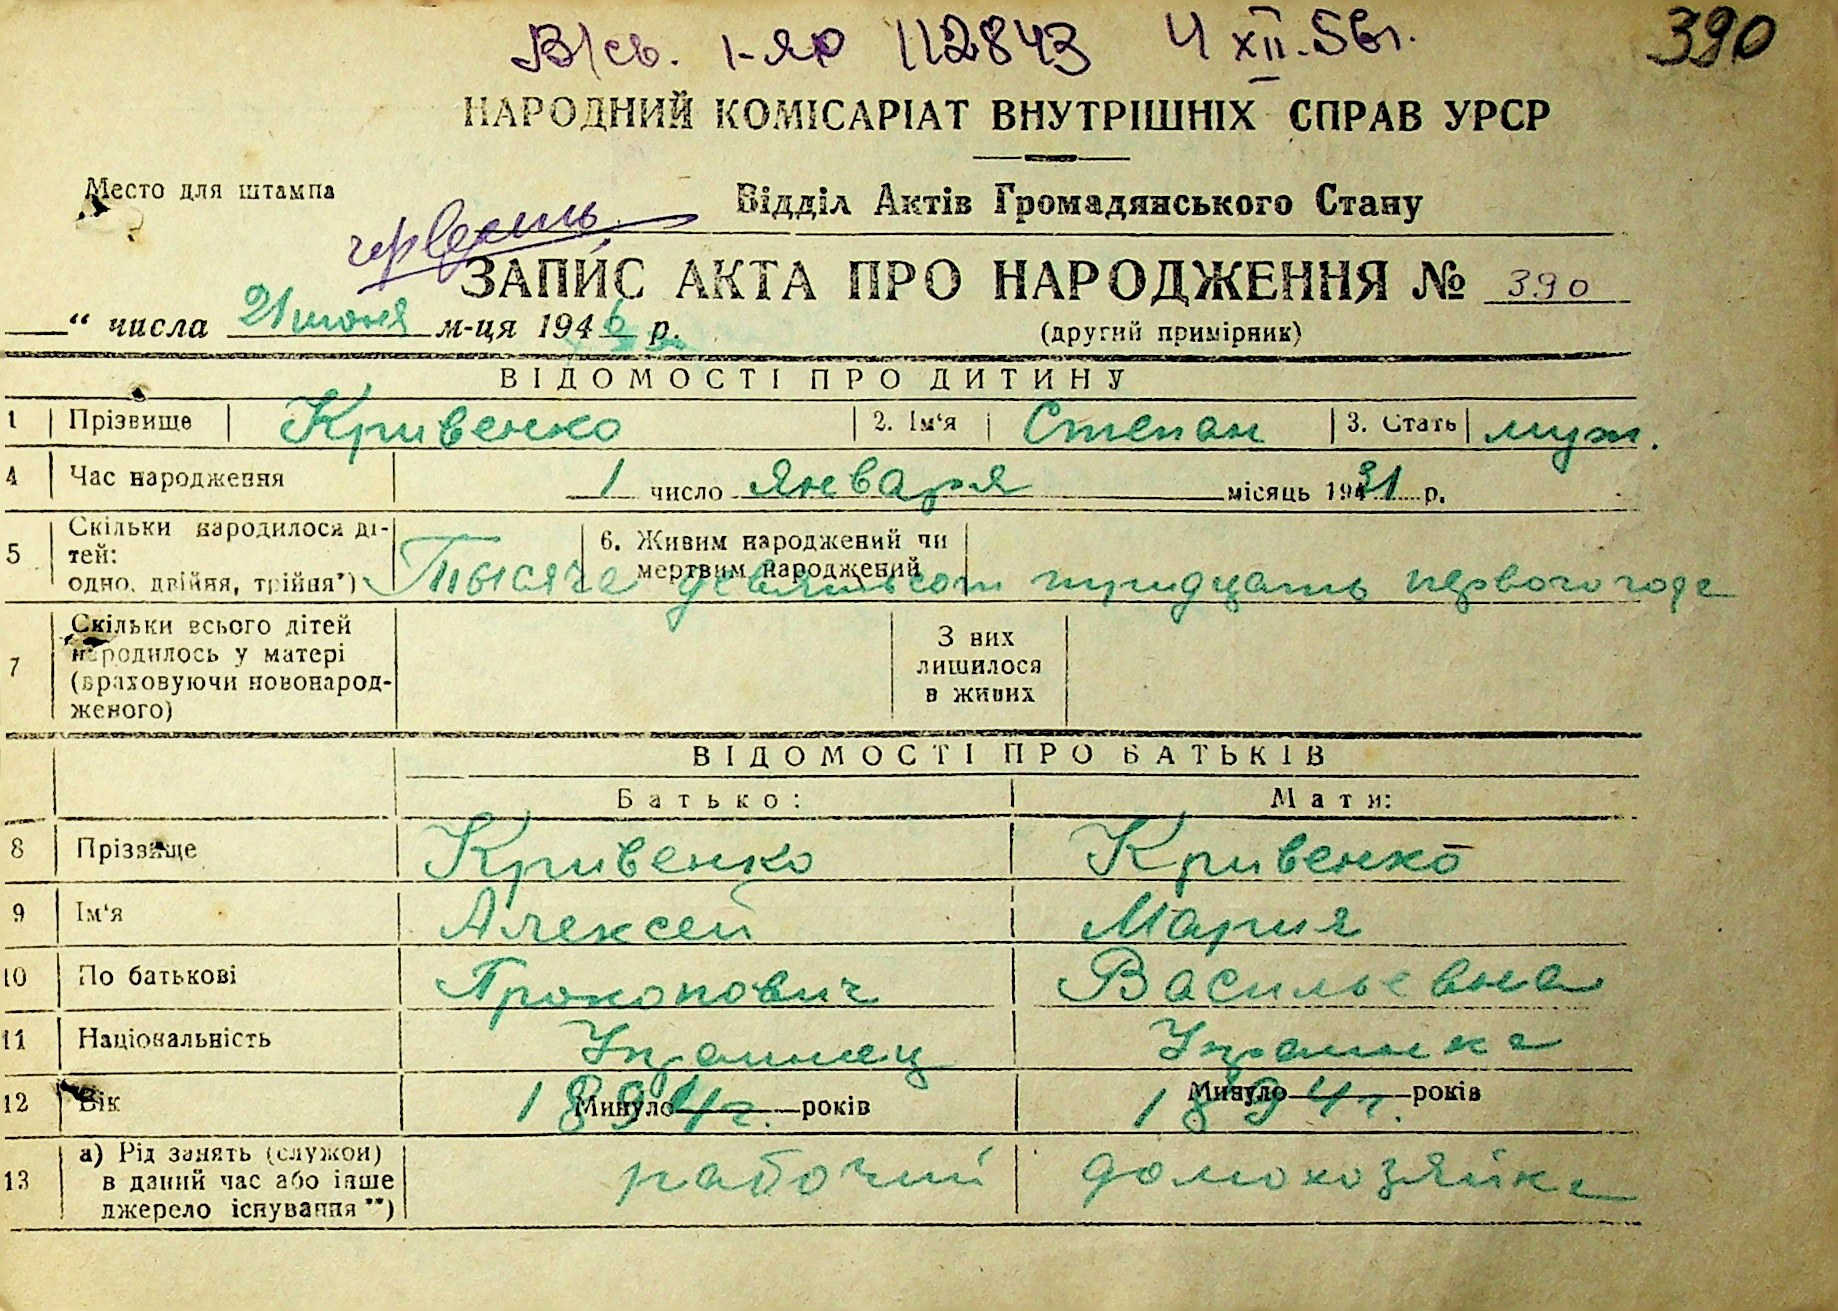 В/св. І-ЯР 112843 4 XII. 56г.
390
НАРОДНИЙ КОМІСАРІАТ ВНУТРІШНІХ СПРАВ УРСР
Место для штампа
Відділ Актів Громадянського Стану
червень
ЗАПИС АКТА ПРО НАРОДЖЕННЯ № 390
“ числа 21 июня м-ця 1946 р.
(другий примірник)
ВІДОМОСТІ ПРО ДИТИНУ
1 Прізвище Кривенко 2. Ім‘я Степан 3. Стать муж.
4 Час народження 1 число Января місяць 1931 р.
5 Скільки народилося ді-
тей:
одно, двійня, трійня*)
6. Живим народжений чи
мертвим народжений
Тысяча девятьсот тридцать первого года
7 Скільки всього дітей
народилось у матері
(враховуючи новонарод-
женого)
З них
лишилося
в живих
ВІДОМОСТІ ПРО БАТЬКІВ
Батько: Мати:
8 Прізвище Кривенко Кривенко
9 Ім‘я Алексей Мария
10 По батькові Прокопович Васильевна
11 Національність Украинец Украинка
12 Вік Минуло років 1894г. Минуло років 1894г.
13 а) Рід занять (служби)
в даний час або інше
джерело існування**)
рабочий домохозяйка